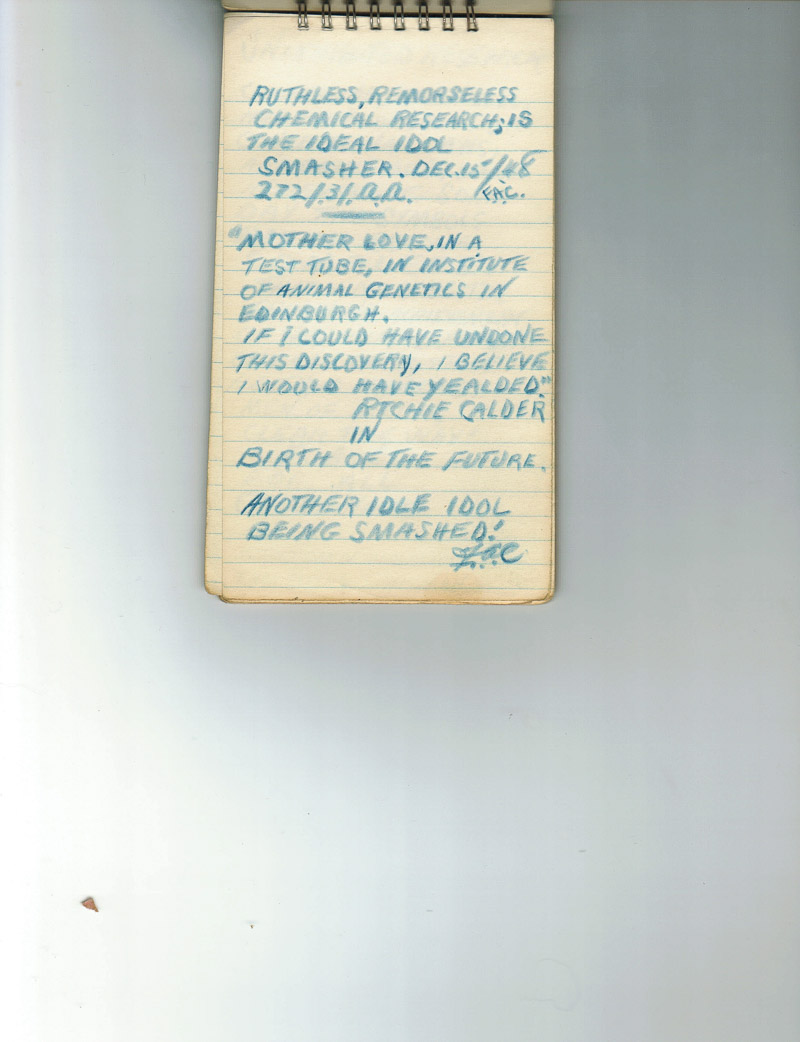 RUTHLESS, REMORSELESS
CHEMICAL RESEARCH; IS
THE IDEAL IDOL
SMASHER. DEC. 15/48
272/.3/. a.a. F.A.C.
"MOTHER LOVE, IN A
TEST TUBE, IN INSTITUTE
OF ANIMAL GENETICS IN
EDINBURGH.
IF I COULD HAVE UNDONE
THIS DISCOVERY, I BELIEVE
I WOULD HAVE YEALDED."
RTCHIE CALDER
IN
BIRTH OF THE FUTURE.
ANOTHER IDLE IDOL
BEING SMASHED!
F.a.C